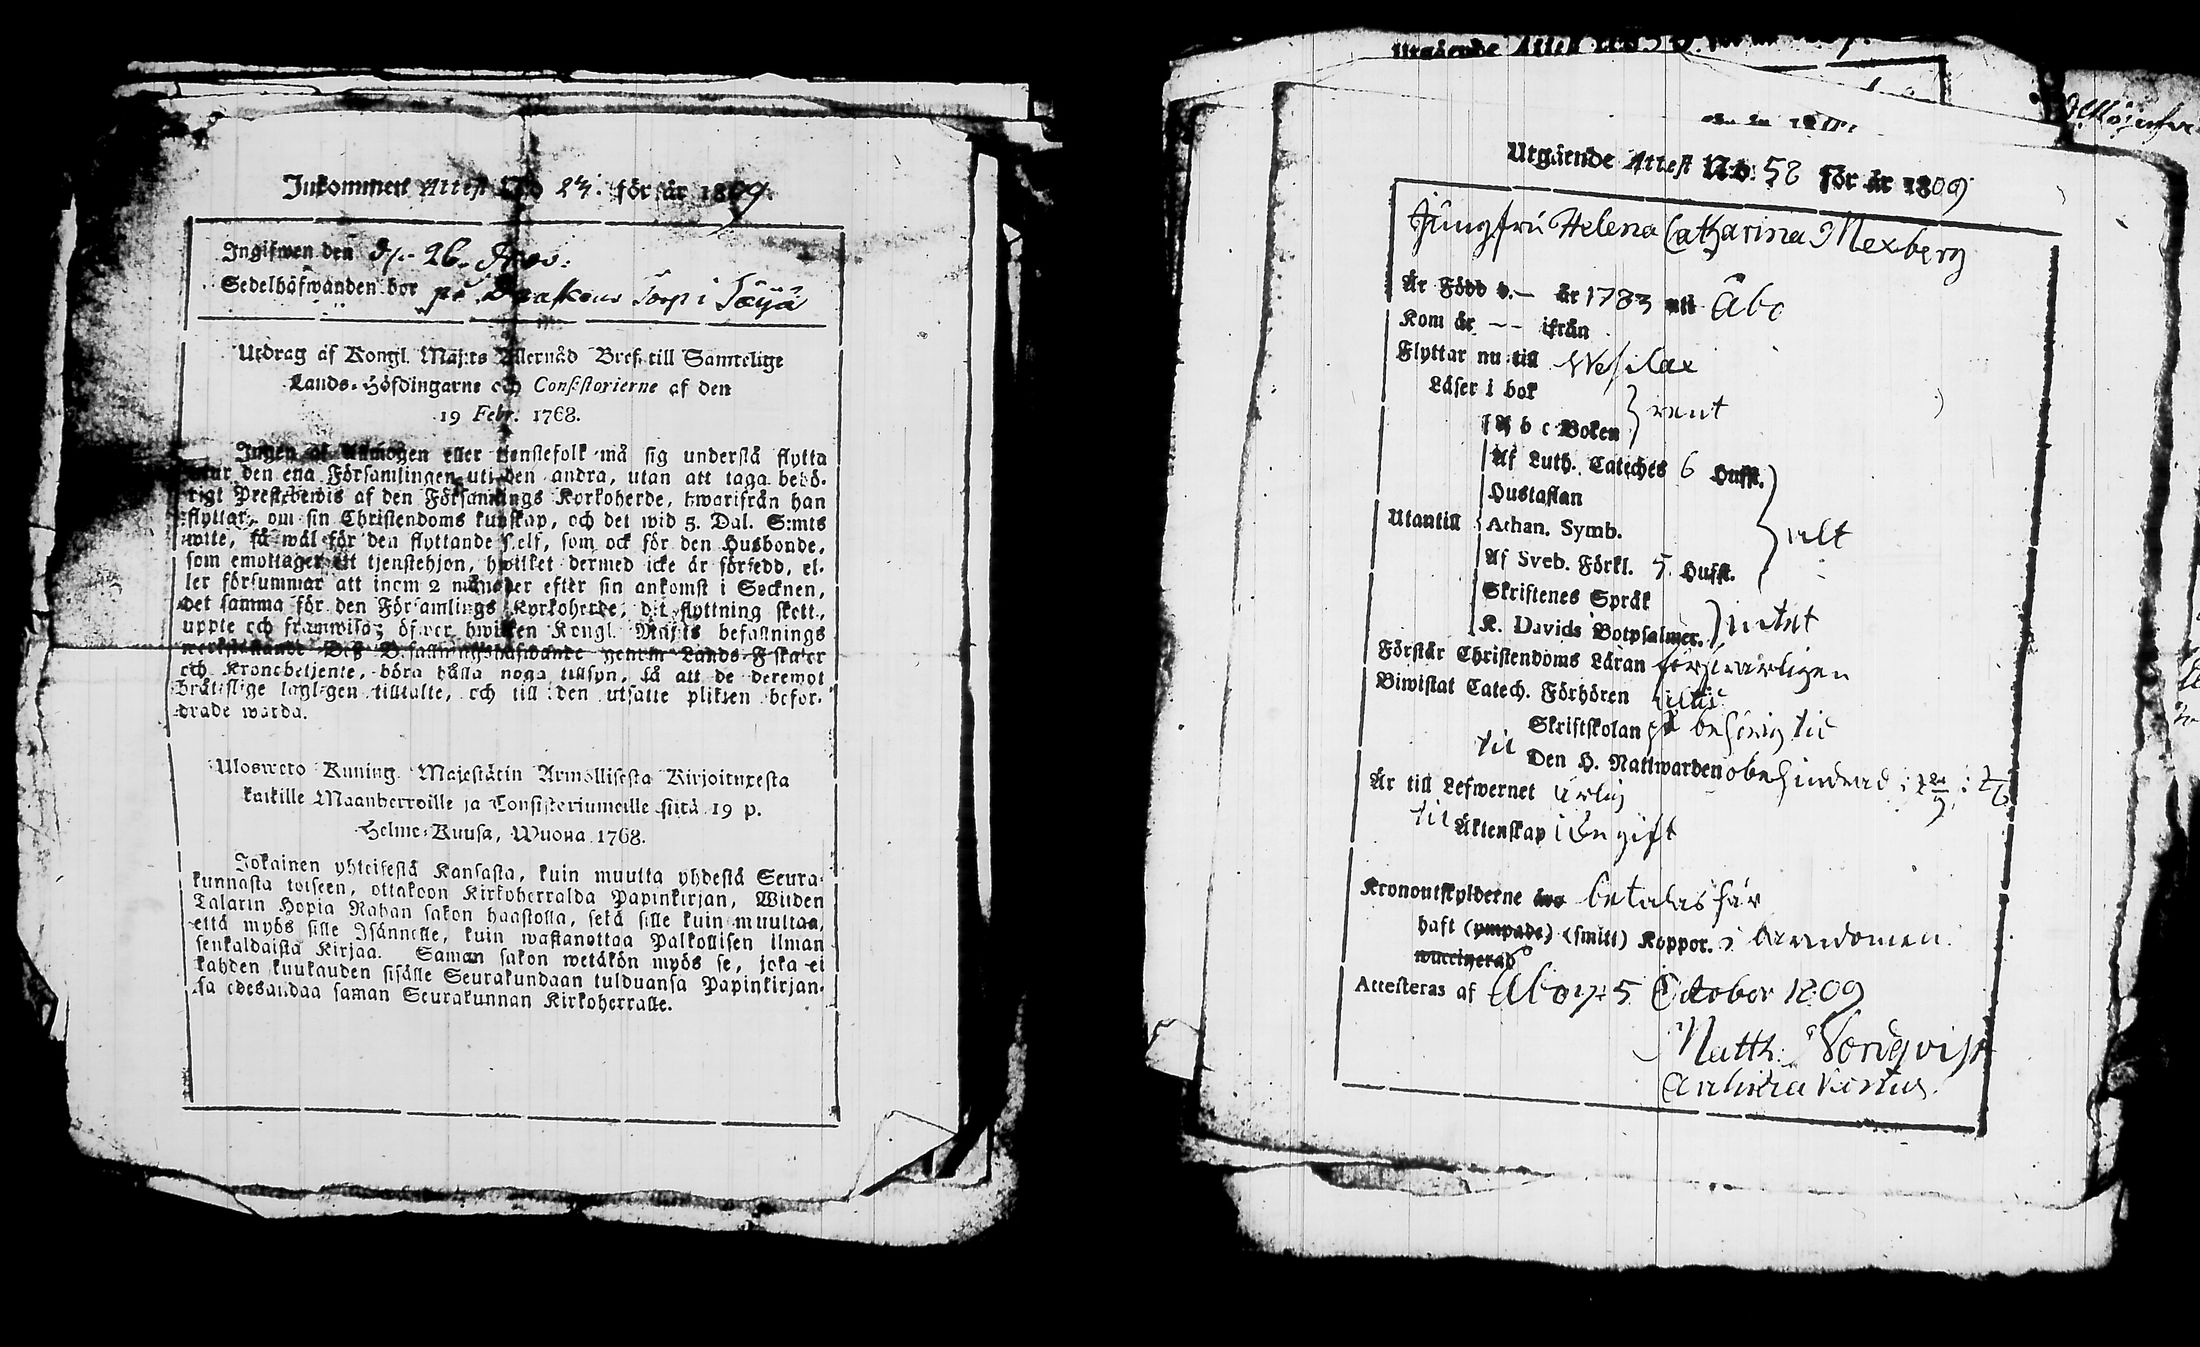 Inkommen Attest No 24. för år 1809.
Ingifwen den 26. Nov:
Sedelhafwanden bor på Torp i
Utdrag af Kongl. Maj:ts Allernåd Bref till Samtelige
Lands-Höfdingarne och Consistorierne af den
19 Febr. 1768.
Ingen af Allmogen eller tjenstefolk må sig understå flytta
utur den ena Församlingen uti den andra, utan att taga behö-
rigt Prestebewis af den Församlings Kyrkoherde, hwarifrån han
flyttar, om sin Christendoms kunskap, och det wid 5. Dal. S:mts
wite, så wäl för den flyttande sielf, som ock för den Husbonde,
som emottager ett tjenstehjon, hwilket dermed icke är försedd, el-
ler försummar att inom 2 månader efter sin ankomst i Socknen,
det samma för den Församlings Kyrkoherde, dit flyttning skett,
uppte och framwisa; öfwer hwilken Kongl. Maj:ts befallnings
werkställande Deß Befallningshafwande genom Lands-Fiskaler
och Kronobetjente, böra hålla noga tillsyn, så att de deremot
brätslige lagligen tilltalte, och till den utsatte plikten befor-
drade warda.
Ulosweto Kuning. Majestätin Armollisesta Kirjoituxesta
kaikille Maanherroille ja Consistoriumeille siitä 19 p.
Helme-Kuusa, Wuona 1768.
Jokainen yhteisestä Kansasta, kuin muutta yhdestä Seura-
kunnasta toiseen, ottakoon Kirkoherralda Papinkirjan, Wiiden
Talarin Hopia Rahan sakon haastolla, sekä sille kuin muuttaa,
että myös sille Isännelle, kuin wastanottaa Palkollisen ilman
senkaldaista Kirjaa. Saman sakon wetäkön myös se, joka ei
kahden kuukauden sisälle Seurakundaan tulduansa Papinkirjan-
sa edesandaa saman Seurakunnan Kirkoherralle.
Utgående Attest No. 58 för år 1809
Jungfru Helena Catharina Mexberg
Är Född d. — år 1783 uti Åbo
Kom år — — ifrån
Flyttar nu till Wesilax
Läser i bok
A b c Boken } rent
Af Luth. Cateches 6 Hufst.
Hustaflan
Utantill Athan. Symb. } allt
Af Sveb. Förkl. 5. Hufst.
Skriftenes Språk
K. Davids Botpsalmer. } intet
Förstår Christendoms Läran försvarligen
Biwistat Catech. Förhören
Skriftskolan
til Den H. Nattwarden obehindrad
Är till Lefwernet ärlig
til Äktenskap ogift
Kronoutskylderne äro betalas här
haft (ympade) (smitt) Koppor. i barndomen.
waccinerad
Attesteras af Åbo 5 October 1809
Matth: Nordqvist